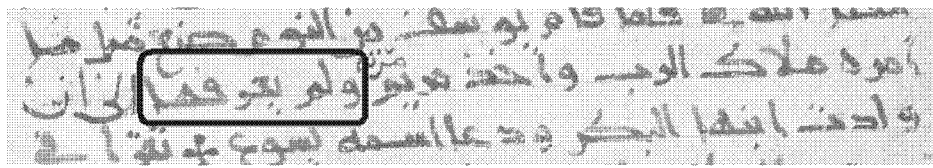 الله فلما قام يوسف من النوم صنع مثل ما
امره ملاك الرب واخذ مريم ولم يعرفها الى ان
ولدت ابنها البكر ودعا اسمه يسوع